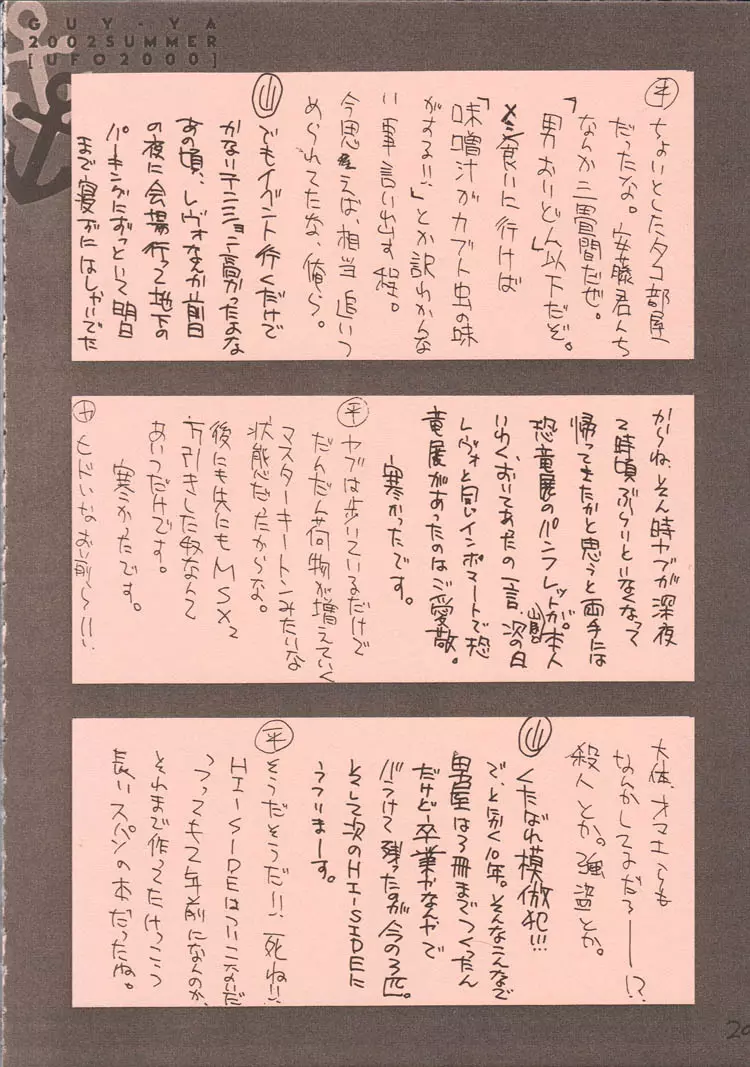 GUY-YA
2002SUMMER
[UFO2000]
㊥ ちょいとしたタコ部屋
だったな。安藤君んち
なんか三畳間だぜ。
「男おいどん以下だぞ。」
メシ食いに行けば
「味噌汁がカブト虫の味
がする!!」とか訳わかんな
い事言い出す程。
今思えば、相当追いつ
められてたな、俺ら。
山 でもイベント行くだけで
かなりテンション高かったよな
あの頃、レヴォなんか前日
の夜に会場行って地下の
パーキングにずっといて明日
まで寝ずにはしゃいでた
からね、そん時ヤブが深夜
2時頃ぶらりといなくなって
帰ってきたかと思うと両手には
恐竜展のパンフレットが。本人
いわく、おいてあたの一言、次の日
レヴォと同じインポマートで恐
竜展があったのはご愛敬。
寒かったです。
平 ヤブは歩いているだけで
だんだん荷物が増えていく
マスターキートンみたいな
状態だったからな。
後にも先にもMSX2
万引きした奴なんて
あいつだけです。
寒かったです。
ヤ ヒドいなお前ら!!!
大体、オマエらも
なんかしてるだろーー!?
殺人とか。強盗とか。
山 くたばれ模倣犯!!!
で、と、別く10年。そんなこんなで
男屋は3冊までつくったん
だけど卒業やなんやで
バラけて残ったのが今の3匹。
そして次のHI-SIDEに
うつりまーす。
平 そうだそうだ!!、死ね!!
HI-SIDEはついこないだ
っつっても2年前になんのか、
それまで作ってたけっこう
長いスパンの本だったね。